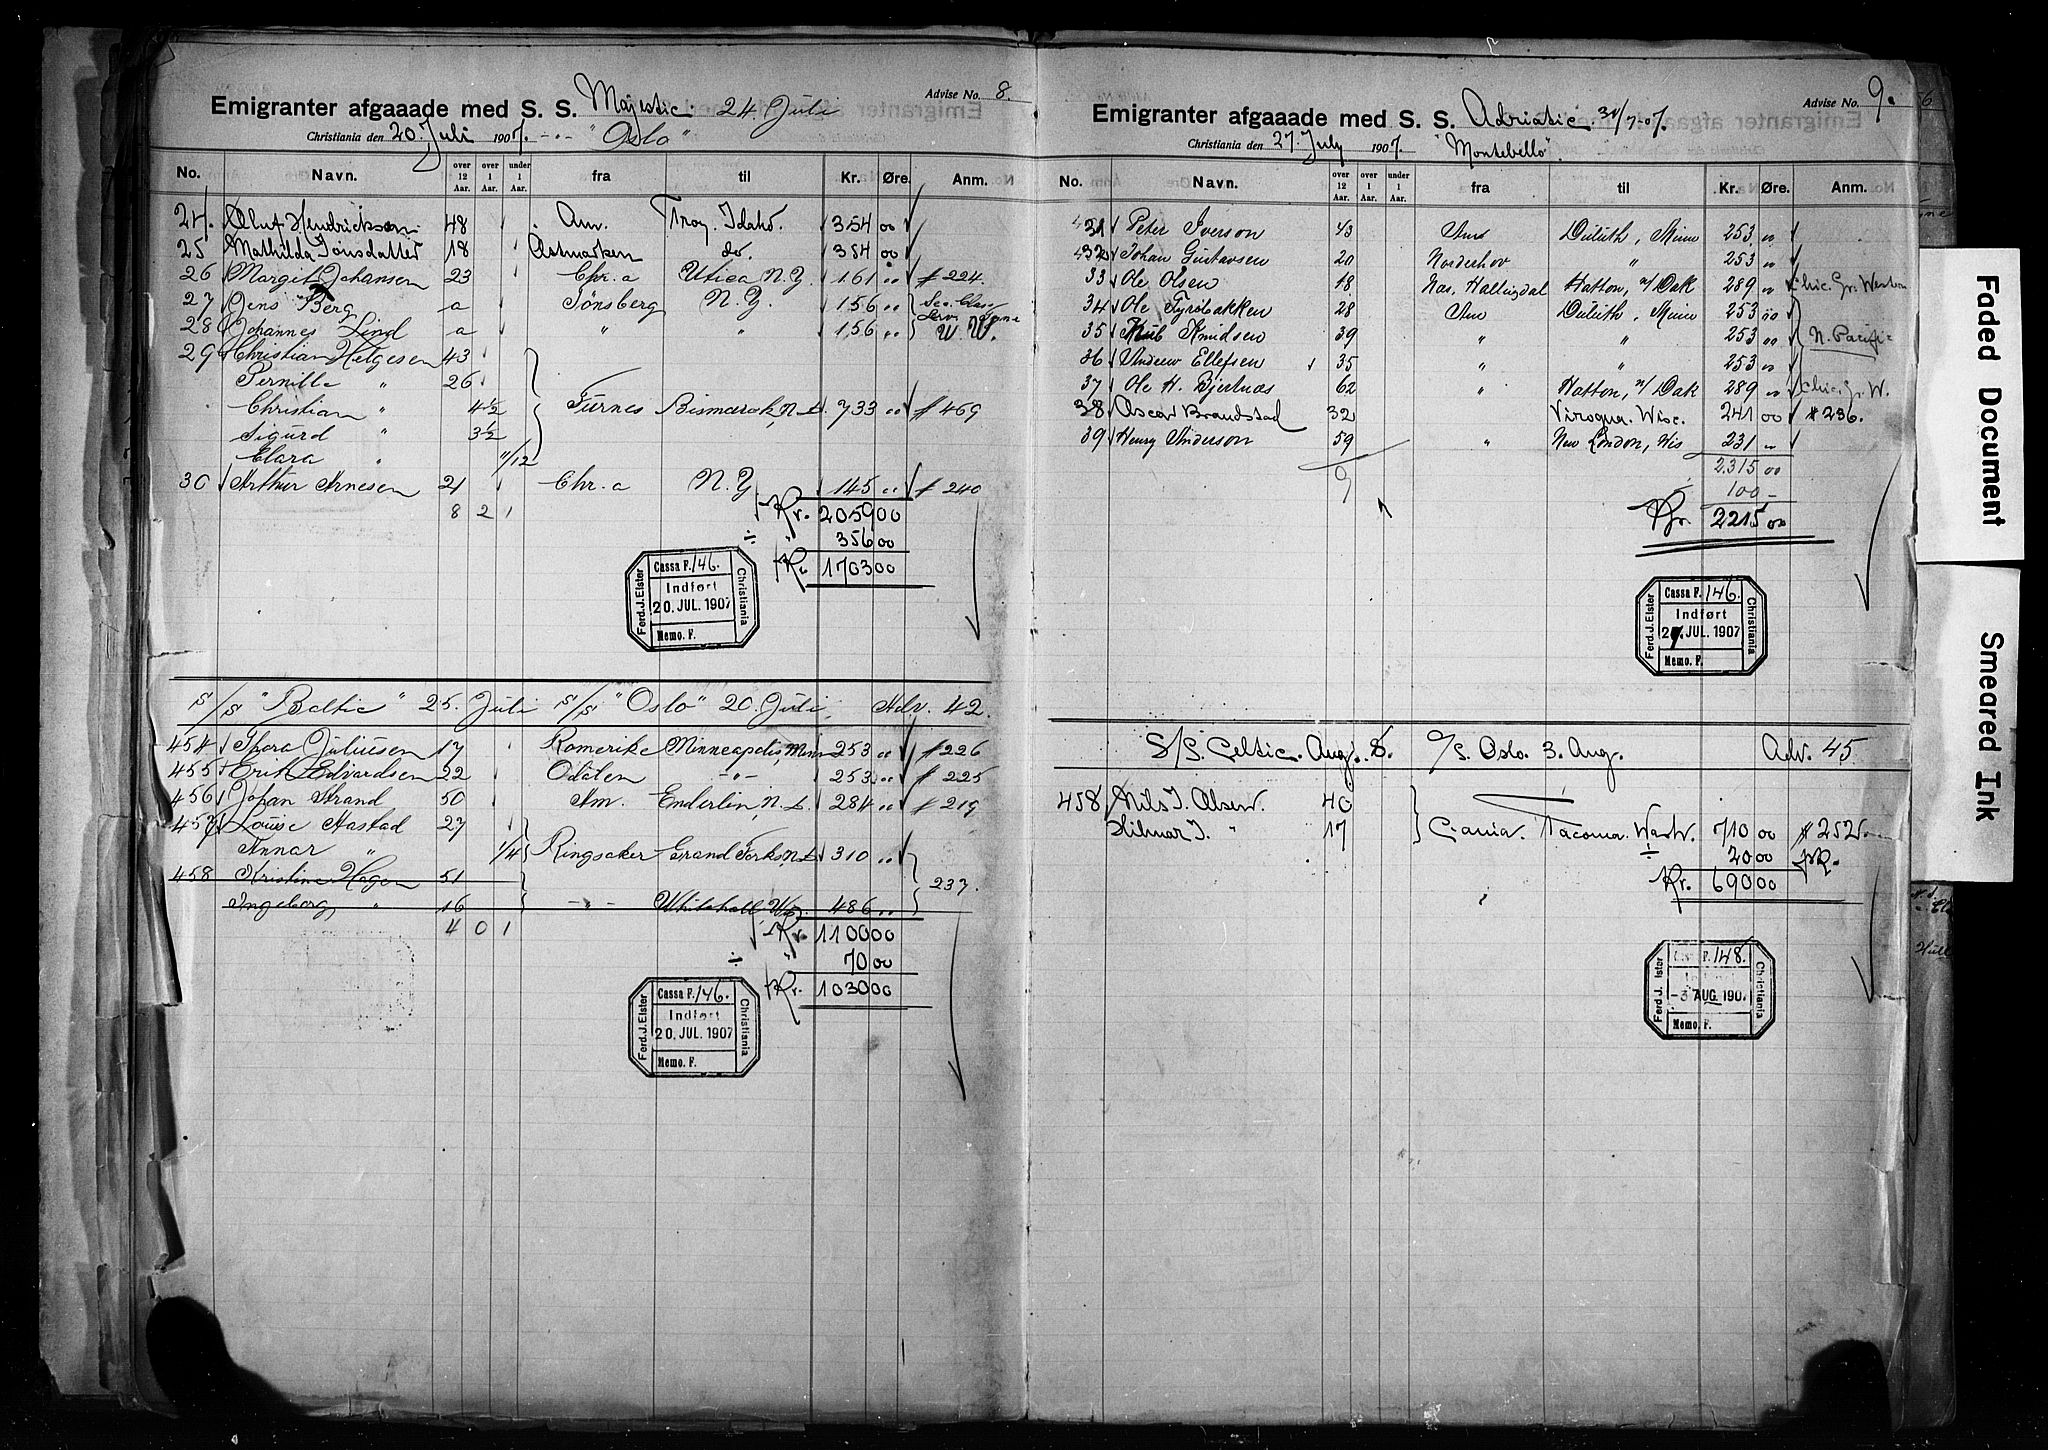 Advise No. 8.
Emigranter afgaaade med S. S. Majestic 24 Juli
Christiania den 20. Juli 1907. -"- "Oslo"
No. Navn. over 12 Aar. over 1 Aar. under 1 Aar. fra til Kr. Øre. Anm.
24. Oluf Hendricksen 48 Am. Troy, Idaho. 354 00
25 Mathilda Jonsdatter 18 Astmarken do. 354 00
26 Margit Johansen 23 Chr.a Utica N.Y. 161 " # 224.
27 Jens Berg a Tönsberg N.Y. 156 "
28 Johannes Lind a " " 156 " W.W.
29 Christian Helgesen 43
Pernille " 26
Christian " 4½ Furnes Bismarck, N.D. 733 " # 469
Sigurd " 3½
Clara " 11/12
30 Arthur Arnesen 21 Chr.a N.Y. 145 " # 240
8 2 1 Kr. 2059 00
÷ " 356 00
Kr. 1703 00
Ferd. J. Elster Christiania
Cassa F. 146.
Indført
20. JUL. 1907
Memo. F.
S/S "Baltic" 25. Juli S/S "Oslo" 20. Juli Adv. 42.
454 Thora Juliusen 17 Romerike Minneapolis, Minn 253 " # 226
455 Erik Edvardsen 22 Odalen -"- 253 " # 225
456 Johan Strand 50 Am. Enderlin, N.D. 284 " # 219
457 Louise Aastad 27
Annar " 1/4 Ringsaker Grand Forks, N.D. 310 "
458 Kristine Hagen 51 237.
Ingeborg " 16 -"- Whitehall Wis. 486 "
4 0 1 Kr. 1100 00
÷ " 70 00
Kr. 1030 00
Ferd. J. Elster Christiania
Cassa F. 146.
Indført
20. JUL. 1907
Memo. F.
Advise No. 9.
Emigranter afgaaade med S. S. Adriatic 31/7-07.
Christiania den 27. July 1907. "Montebello".
No. Navn. over 12 Aar. over 1 Aar. under 1 Aar. fra til Kr. Øre. Anm.
431 Peter Iverson 43 Am Duluth, Minn 253 "
432 Johan Gustavsen 20 Norderhov " 253 "
33 Ole Olsen 18 Nas, Hallingdal Hatton, N/Dak 289 " Chic. Gr. Western
34 Ole Tyribakken 28 Am Duluth, Minn 253 "
35 Knudsen 39 " " 253 " N. Pacific
36 Andrew Ellefsen 35 " 253 "
37 Ole H. Bjertnæs 62 " Hatton, N/Dak 289 " Chic. Gr. W.
38 Oscar Brandstad 32 Viroqua. Wisc. 241 00 # 236.
39 Henry Anderson 59 " New London, Wis 231 "
9 2315 00
100 -
Kr. 2215 00
Ferd. J. Elster Christiania
Cassa F. 146.
Indført
27. JUL. 1907
Memo. F.
S/S. Celtic. Aug. 8. S/S. Oslo. 3. Aug. Adv. 45
458 Nils J. Olsen. 40
Hilmar J. " 17 C.ania. Tacoma. Wash. 710 00 # 252
÷ 20 00
Kr. 690 00
Ferd. J. Elster Christiania
F. 148.
-3 AUG. 1907
Memo. F.
Faded Document
Smeared Ink